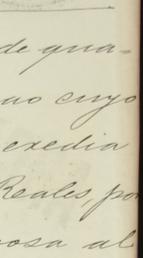 de gua-
no cuyo
exedia
Reales, po
osa al